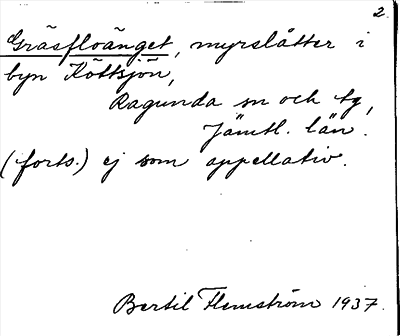 2.
Gräsfloänget, myrslåtter i
byn Köttsjön,
Ragunda sn och tg,
Jämtl. län.
(forts.) ej som appellativ.
Bertil Flemström 1937.